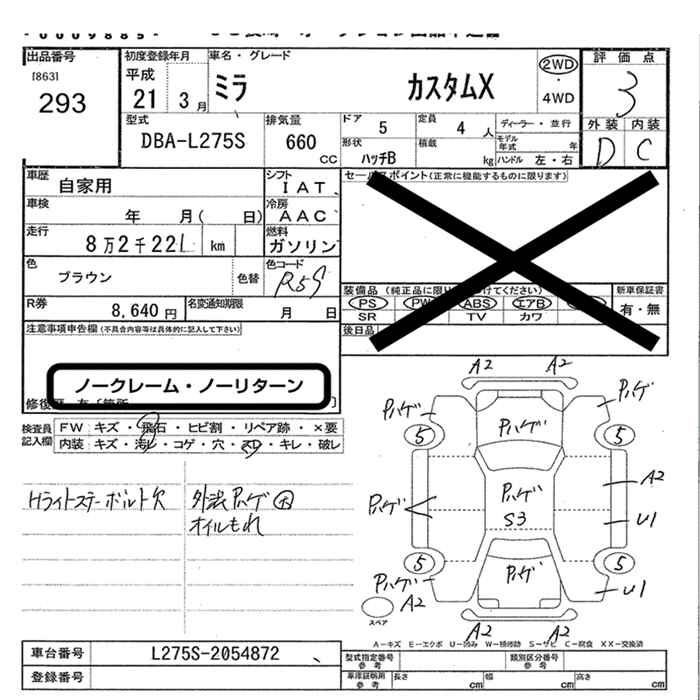 出品番号
[863]
293
初度登録年月
平成
21 3月
車名・グレード
ミラ カスタムX
2WD
・
4WD
評価点
3
外装 内装
D C
型式
DBA-L275S
排気量
660
CC
ドア
5
定員
4 人
ディーラー・並行
モデル
年式 年
形状
ハッチB
積載
kg
ハンドル 左・右
車歴
自家用
シフト
IAT
車検
年 月( 日)
冷房
AAC
走行
8万2千221 km
燃料
ガソリン
色
ブラウン
色替
色コード
R59
R券
8,640円
名変通知期限
月 日
セールスポイント(正常に機能するものに限ります)
装備品
PS PW ABS エアB
SR TV カワ
新車保証書
有・無
後日品
注意事項申告欄(不具合内容等は具体的に記入して下さい)
ノークレーム・ノーリターン
検査員
記入欄
FW キズ・飛石・ヒビ割・リペア跡・×要
内装 キズ・汚レ・コゲ・穴・スレ・キレ・破レ
Hライトステーボルト欠
外装Pハゲ大
オイルもれ
A2 A2
Pハゲ Pハゲ
Pハゲ
5 5
Pハゲ
Pハゲ
S3
A2
U1
5 5
Pハゲ
Pハゲ
A2
U1
A2 A2
スペア
A-キズ E-エクボ U-凹み W-補修跡 S-サビ C-腐食 XX-交換済
車台番号
L275S-2054872
登録番号
型式指定番号
参考
類別区分番号
参考
車庫証明用
参考
長さ cm
幅 cm
高さ cm